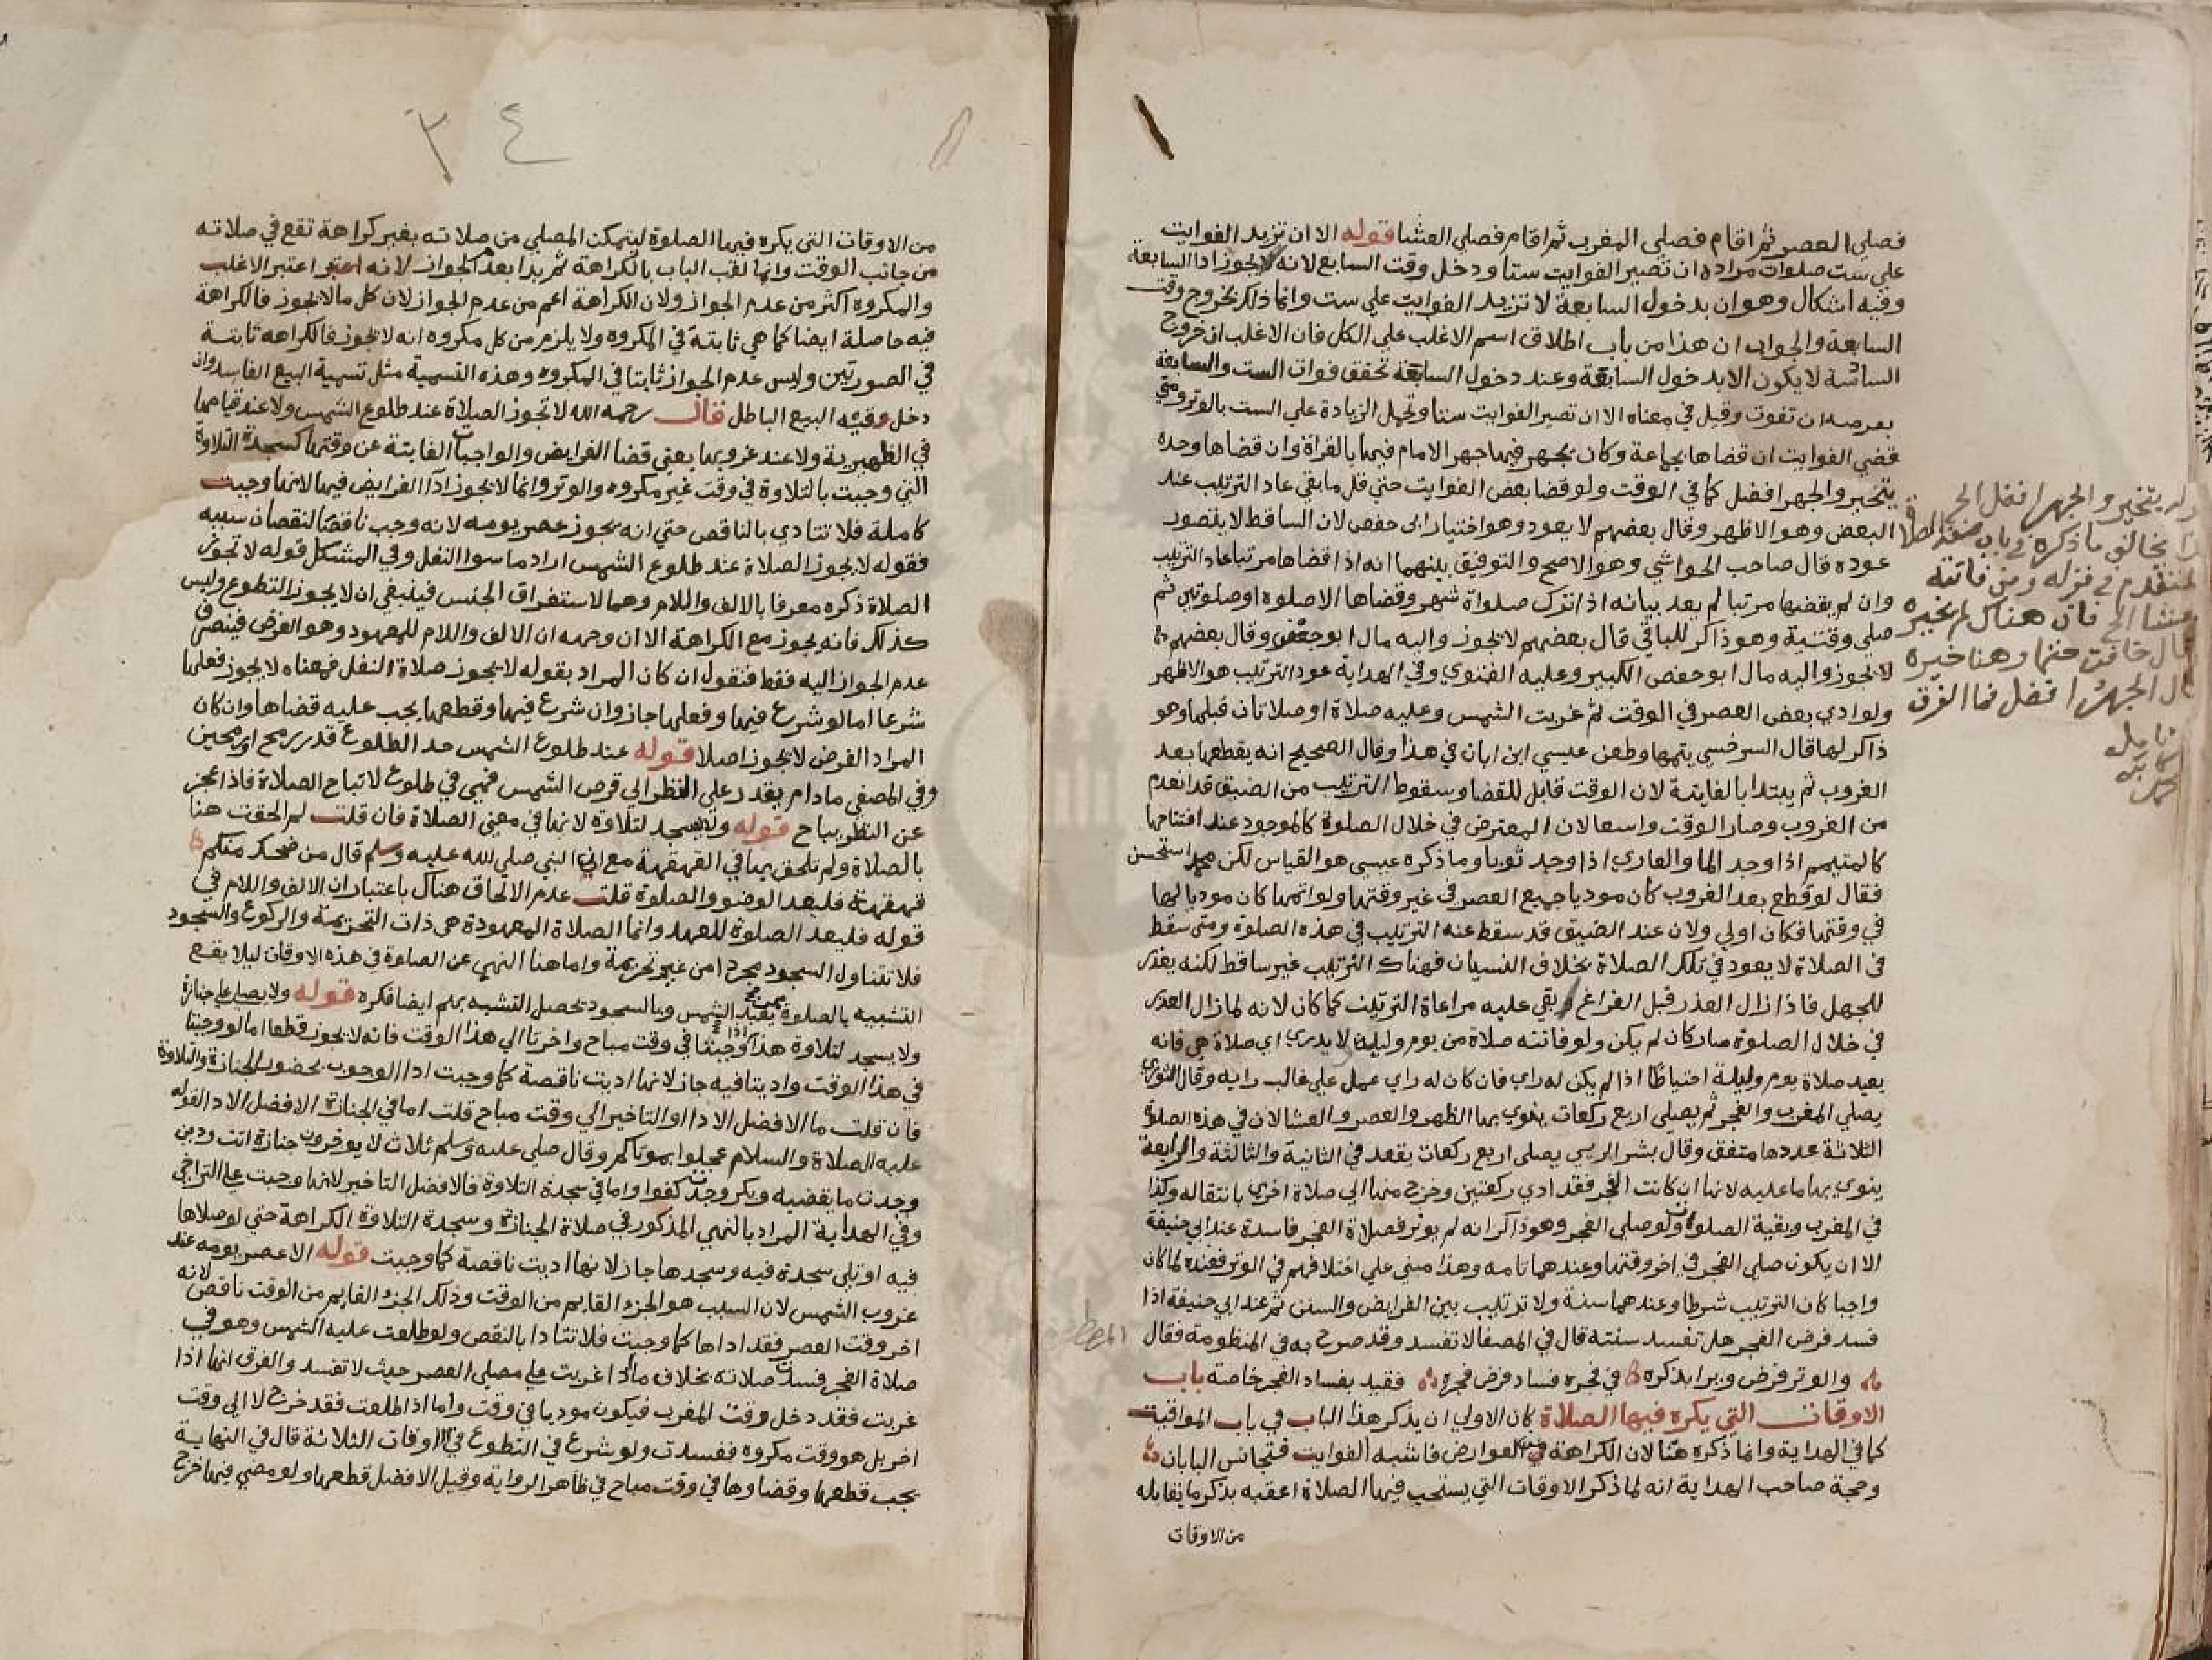 فصلى العصر ثم اقام فصلى المغرب ثم اقام فصلى العشا قوله الا ان تزيد الفوايت
على ست صلوات مراده ان تصير الفوايت ستا ودخل وقت السابع لانه لا يجوز ادا السابعة
وفيه اشكال وهو ان بدخول السابعة لا تزيد الفوايت على ست وانما ذلك بخروج وقت
السابعة والجواب ان هذا من باب اطلاق اسم الاغلب على الكل فان الاغلب ان خروج
السادسة لا يكون الا بدخول السابعة وعند دخول السابعة تحقق فوات الست والسابعة
بعرصه ان تفوت وقيل في معناه الا ان تصير الفوايت ستا وتحمل الزيادة على الست بالوتر ومتى
قضى الفوايت ان قضاها بجماعة وكان يجهر فيها جهر الامام فيها بالقراة وان قضاها وحده
يتخير والجهر افضل كما في الوقت ولو قضا بعض الفوايت حتى قل ما بقي عاد الترتيب عند
البعض وهو الاظهر وقال بعضهم لا يعود وهو اختيار ابي حفص لان الساقط لا يتصور
عوده قال صاحب الحواشي وهو الاصح والتوفيق بينهما انه اذا قضاها مرتبا عاد الترتيب
وان لم يقضها مرتبا لم يعد بيانه اذا ترك صلواة شهر وقضاها الا صلوة او صلوتين ثم
صلى وقتية وهو ذاكر للباقي قال بعضهم لا يجوز واليه مال ابو جعفر وقال بعضهم
لا يجوز واليه مال ابو حفص الكبير وعليه الفتوي وفي الهداية عود الترتيب هو الاظهر
ولو ادي بعض العصر في الوقت ثم غربت الشمس وعليه صلاة او صلاتان قبلها وهو
ذاكر لها قال السرخسي يتمها وطعن عيسي ابن ابان في هذا وقال الصحيح انه يقطعها بعد
الغروب ثم يبتدا بالفايتة لان الوقت قابل للقضا وسقوط الترتيب من الضيق قد انعدم
من الغروب وصار الوقت واسعا لان المعترض في خلال الصلوة كالموجود عند افتتاحها
كالمتيمم اذا وجد الما والعاري اذا وجد ثوبا وما ذكره عيسى هو القياس لكن محمد استحسن
فقال لو قطع بعد الغروب كان موديا جميع العصر في غير وقتها ولو اتمها كان موديا لها
في وقتها فكان اولي ولان عند الضيق قد سقط عنه الترتيب في هذه الصلوة ومتى سقط
في الصلاة لا يعود في تلك الصلاة بخلاف النسيان فهناك الترتيب غير ساقط لكنه يعذر
للجهل فاذا زال العذر قبل الفراغ بقي عليه مراعاة الترتيب كما كان لانه لما زال العذر
في خلال الصلوة صار كان لم يكن ولو فاتته صلاة من يوم وليلة لا يدري اي صلاة هي فانه
يعيد صلاة يوم وليلة احتياطا اذا لم يكن له راي فان كان له راي عمل على غالب رايه وقال الثوري
يصلي المغرب والفجر ثم يصلى اربع ركعات ينوي بها الظهر والعصر والعشا لان في هذه الصلوة
الثلاثة عددها متفق وقال بشر المريسي يصلى اربع ركعات يقعد في الثانية والثالثة والرابعة
ينوي بها ما عليه لانها ان كانت الفجر فقد ادي ركعتين وخرج منها الى صلاة اخري بانتقاله وكذا
في المغرب وبقية الصلوات ولو صلى الفجر وهو ذاكر انه لم يوتر فصلاة الفجر فاسدة عند ابي حنيفة
الا ان يكون صلى الفجر في اخر وقتها وعندهما تامه وهذا مبني على اختلافهم في الوتر فعنده لما كان
واجبا كان الترتيب شرطا وعندهما سنة ولا ترتيب بين الفرايض والسنن ثم عند ابي حنيفة اذا
فسد فرض الفجر هل تفسد سنته قال في المصفا لا تفسد وقد صرح به في المنظومة فقال
والوتر فرض ويرا بذكره في فجره فساد فرض فجره فقيد بفساد الفجر خاصة باب
الاوقات التي يكره فيها الصلاة كان الاولي ان يذكر هذا الباب في باب المواقيت
كما في الهداية وانما ذكره هنا لان الكراهة من العوارض فاشبه الفوايت فتجانس البابان
وحجة صاحب الهداية انه لما ذكر الاوقات التي يستحب فيها الصلاة اعقبه بذكر ما يقابله
من الاوقات
يتخير والجهر افضل الخ
يخالف ما ذكره في باب صفة الصلاة
المتقدم في قوله ومن فاتته
العشا الخ فان هناك لم يخيره
قال خافت حتما وهنا خيره
قال الجهر افضل فما الفرق
تامل
٣٤
من الاوقات التي يكره فيها الصلوة ليتمكن المصلى من صلاته بغير كراهة تقع في صلاته
من جانب الوقت وانما لقب الباب بالكراهة ثم بدا بعدم الجواز لانه اعتبر الاغلب
والمكروه اكثر من عدم الجواز ولان الكراهة اعم من عدم الجواز لان كل ما لا يجوز فالكراهة
فيه حاصلة ايضا كما هي ثابتة في المكروه ولا يلزم من كل مكروه انه لا يجوز فالكراهة ثابتة
في الصورتين وليس عدم الجواز ثابتا في المكروه وهذه التسمية مثل تسمية البيع الفاسد وان
دخل فيه البيع الباطل قال رحمه الله لا تجوز الصلاة عند طلوع الشمس ولا عند قيامها
في الظهيرية ولا عند غروبها يعني قضا الفرايض والواجبات الفايتة عن وقتها كسجدة التلاوة
التي وجبت بالتلاوة في وقت غير مكروه والوتر وانما لا يجوز ادا الفرايض فيها لانها وجبت
كاملة فلا تتادي بالناقص حتي انه يجوز عصر يومه لانه وجب ناقصا لنقصان سببه
فقوله لا يجوز الصلاة عند طلوع الشمس اراد ما سوا النفل وفي المشكل قوله لا تجوز
الصلاة ذكره معرفا بالالف واللام وهما لاستغراق الجنس فينبغي ان لا يجوز التطوع وليس
كذلك فانه يجوز مع الكراهة الا ان وجهه ان الالف واللام للمعهود وهو الفرض فينصرف
عدم الجواز اليه فقط فنقول ان كان المراد بقوله لا يجوز صلاة النفل فمعناه لا يجوز فعلها
شرعا اما لو شرع فيها وفعلها جاز وان شرع فيها وقطعها يجب عليه قضاها وان كان
المراد الفرض لا يجوز اصلا قوله عند طلوع الشمس حد الطلوع قدر رمح او رمحين
وفي المصفي مادام يقدر على النظر الى قرص الشمس فهي في طلوع لا تباح الصلاة فاذا عجز
عن النظر يباح قوله ولا يسجد لتلاوة لانها في معني الصلاة فان قلت لم الحقت هنا
بالصلاة ولم تلحق بها في القهقهة مع ان النبي صلى الله عليه وسلم قال من ضحك منكم
قهقهة فليعد الوضو والصلوة قلت عدم الالحاق هناك باعتبار ان الالف واللام في
قوله فليعد الصلوة للعهد وانما الصلاة المعهودة هي ذات التحريمة والركوع والسجود
فلا تتناول السجود مجردا من غير تحريمة واما هنا النهي عن الصلوة في هذه الاوقات ليلا يقع
التشبيه بالصلوة بمن يعبد الشمس وبالسجود يحصل التشبه بهم ايضا فكره قوله ولا يصلي على جنازة
ولا يسجد لتلاوة هذا اذا وجبتا في وقت مباح واخرتا الى هذا الوقت فانه لا يجوز قطعا اما لو وجبتا
في هذا الوقت واديتا فيه جاز لانها اديت ناقصة كما وجبت اذا الوجوب بحضور الجنازة والتلاوة
فان قلت ما الافضل الادا او التاخير الي وقت مباح قلت اما في الجنازة الافضل الادا لقوله
عليه الصلاة والسلام عجلوا بموتاكم وقال صلى عليه وسلم ثلاث لا يوخرون جنازة اتت ودين
وجدت ما يقضيه وبكر وجدت كفوا واما في سجدة التلاوة فالافضل التاخير لانها وجبت على التراخي
وفي الهداية المراد بالنهي المذكور في صلاة الجنازة وسجدة التلاوة الكراهة حتي لو صلاها
فيه او تلى سجدة فيه وسجدها جاز لانها اديت ناقصة كما وجبت قوله الا عصر يومه عند
غروب الشمس لان السبب هو الجزء القايم من الوقت وذلك الجزء القايم من الوقت ناقص لانه
اخر وقت العصر فقد اداها كما وجبت فلا تتادا بالنقص ولو طلعت عليه الشمس وهو في
صلاة الفجر فسدت صلاته بخلاف ما اذا غربت على مصلى العصر حيث لا تفسد والفرق انها اذا
غربت فقد دخل وقت المغرب فيكون موديا في وقت واما اذا طلعت فقد خرج لا الي وقت
اخر بل هو وقت مكروه ففسدت ولو شرع في التطوع في الاوقات الثلاثة قال في النهاية
يجب قطعها وقضاوها في وقت مباح في ظاهر الرواية وقيل الافضل قطعها ولو مضي فيها خرج